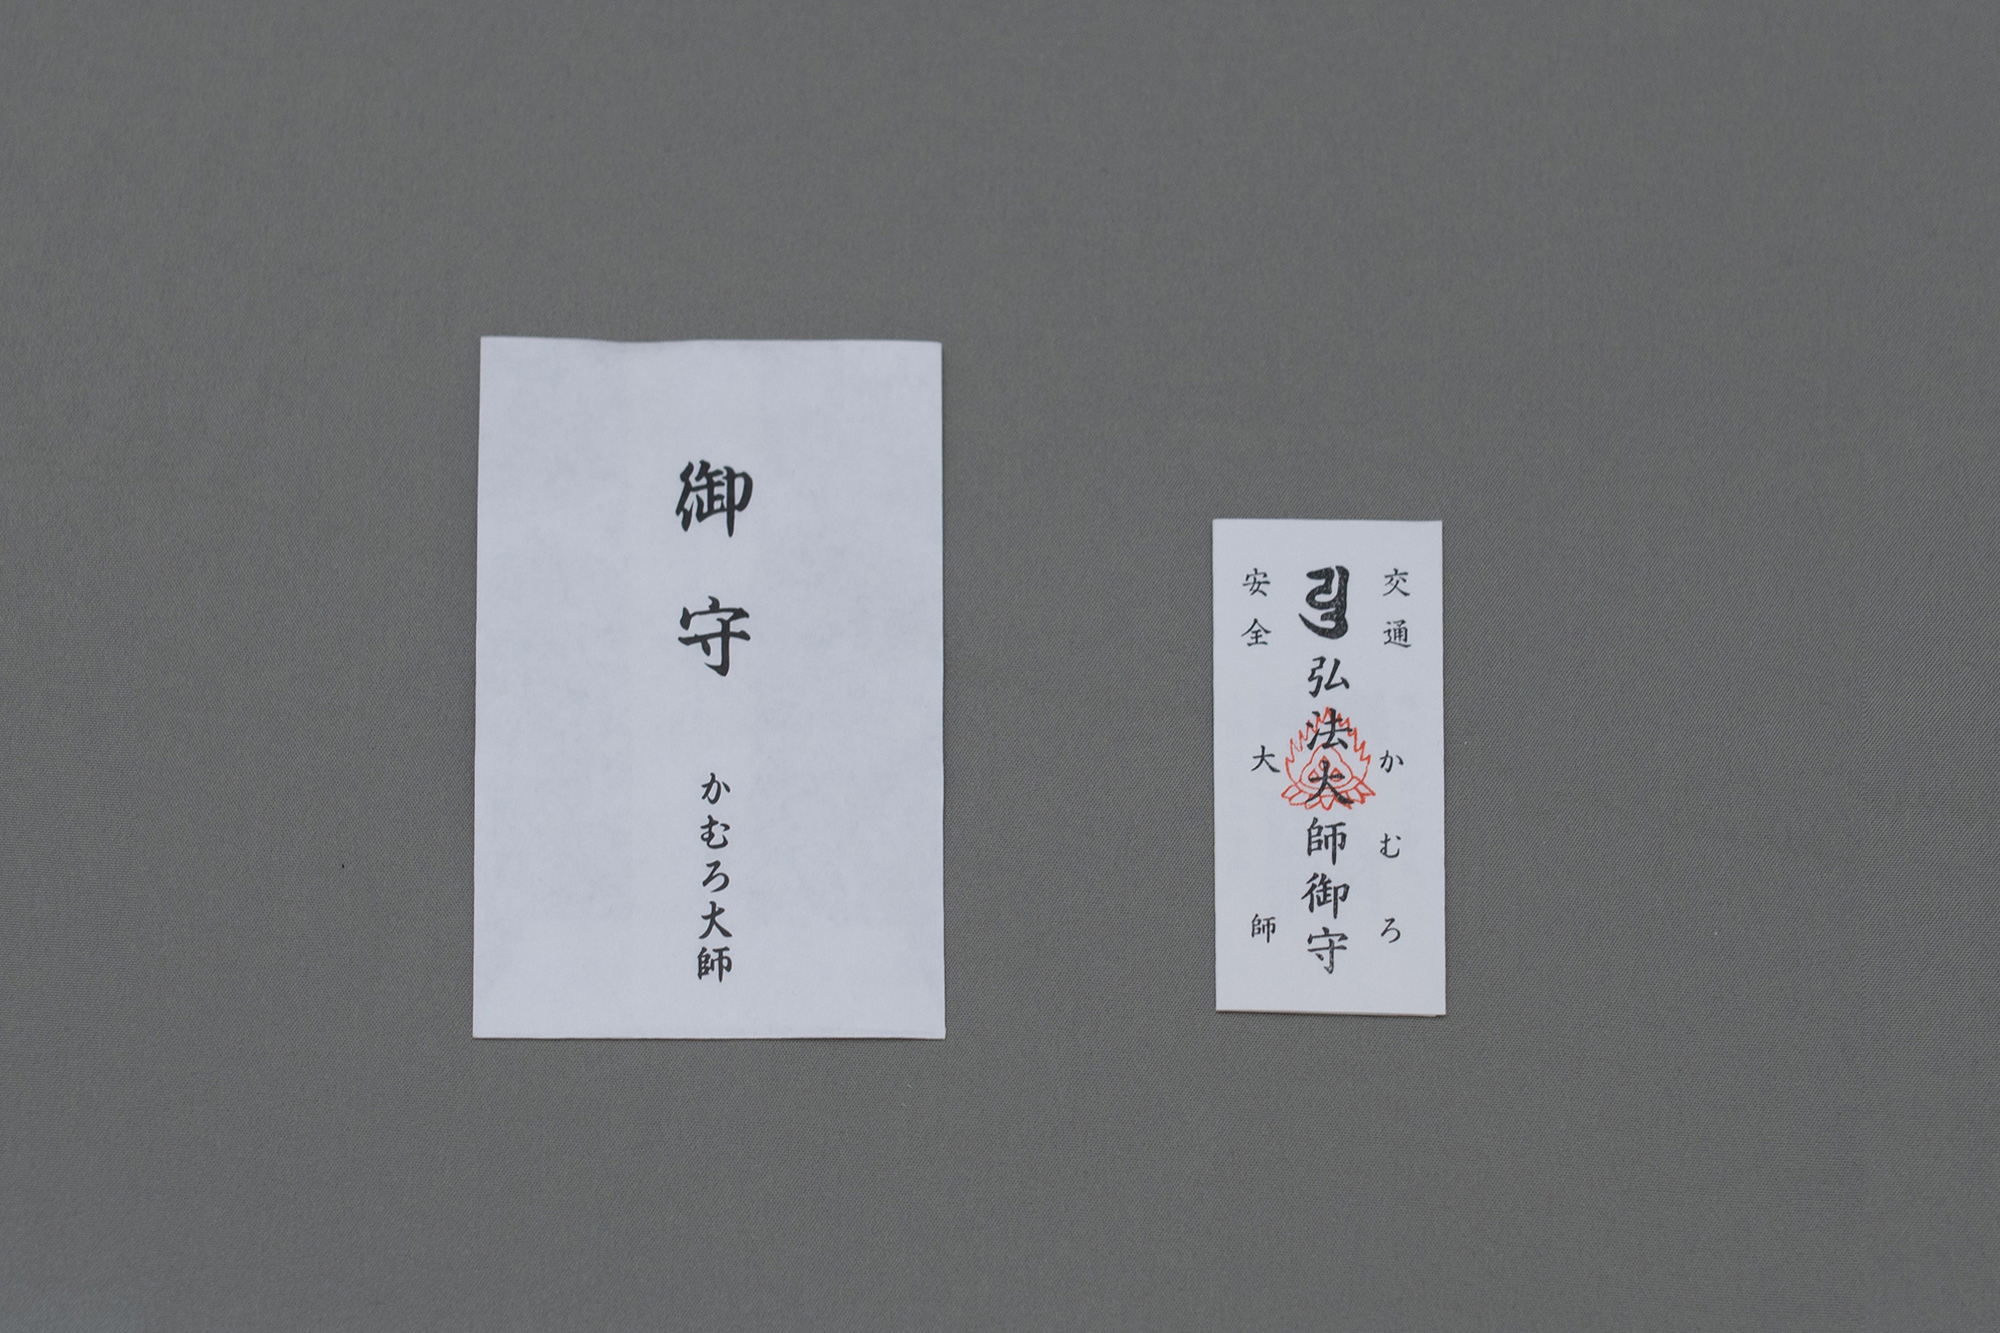 御守
かむろ大師
交通
安全
弘法大師御守
かむろ
大師